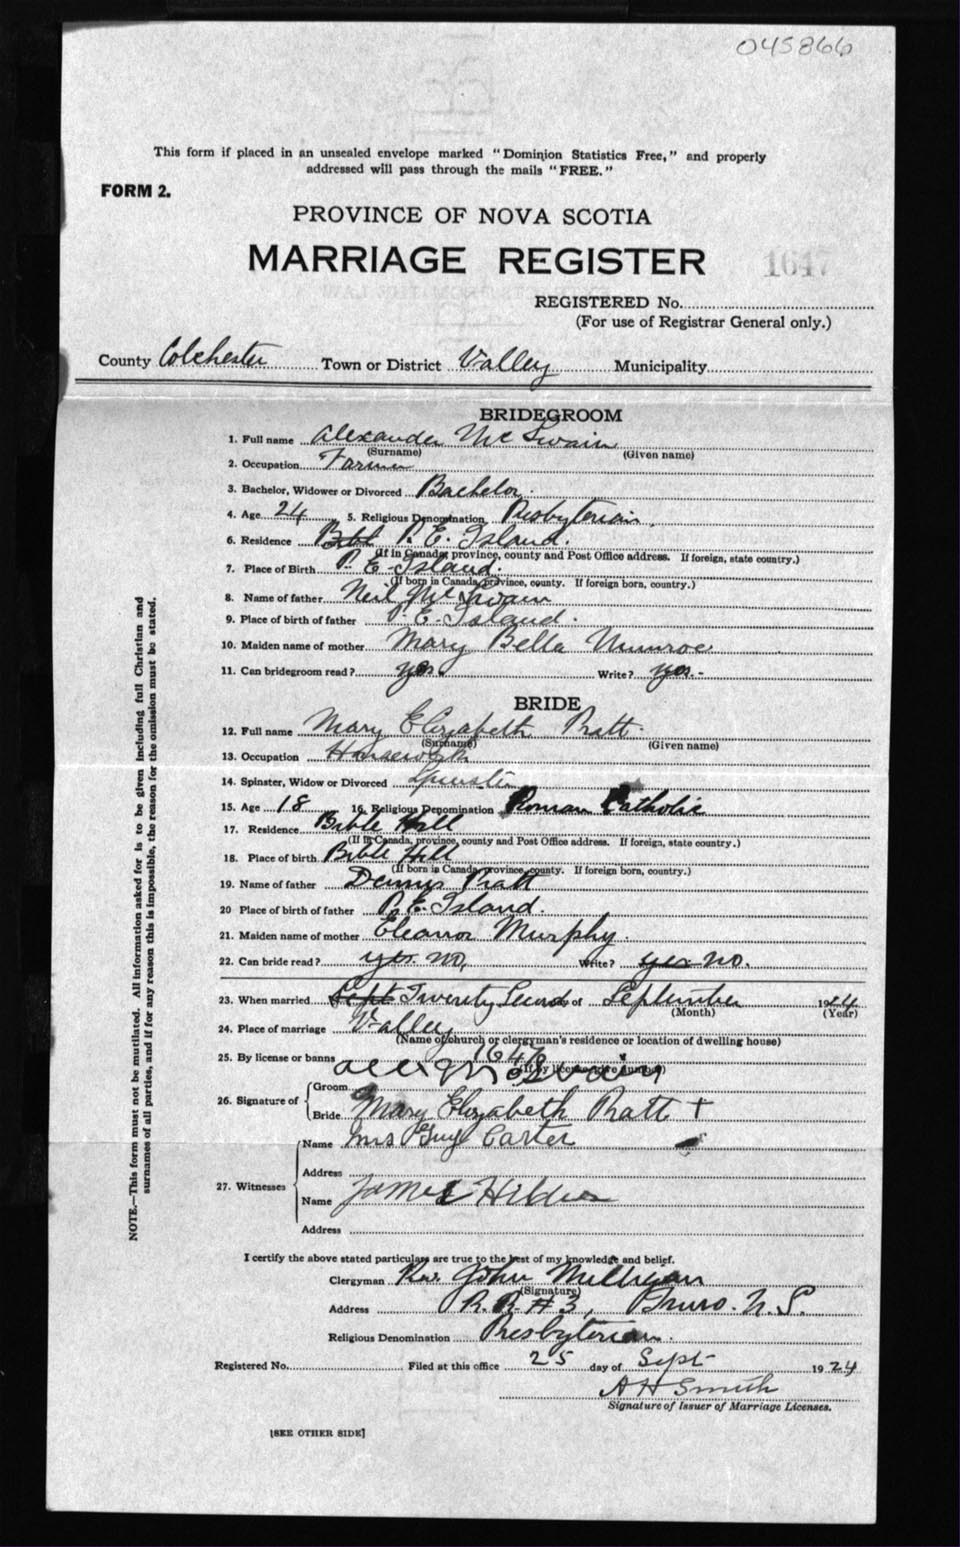 045866
This form if placed in an unsealed envelope marked "Dominion Statistics Free," and properly
addressed will pass through the mails "FREE."
FORM 2.
PROVINCE OF NOVA SCOTIA
MARRIAGE REGISTER 1647
REGISTERED No.
(For use of Registrar General only.)
County Colchester Town or District Valley Municipality
BRIDEGROOM
1. Full name Alexander McSwain
(Surname) (Given name)
2. Occupation Farmer
3. Bachelor, Widower or Divorced Bachelor.
4. Age 24 5. Religious Denomination Presbyterian.
6. Residence P. E. Island.
(If in Canada, province, county and Post Office address. If foreign, state country.)
7. Place of Birth P. E. Island.
(If born in Canada, province, county. If foreign born, country.)
8. Name of father Neil McSwain
9. Place of birth of father P. E. Island.
10. Maiden name of mother Mary Bella Munroe
11. Can bridegroom read? yes. Write? yes.
BRIDE
12. Full name Mary Elizabeth Pratt.
(Surname) (Given name)
13. Occupation Housework
14. Spinster, Widow or Divorced Spinster
15. Age 18 16. Religious Denomination Roman Catholic
17. Residence Bible Hill
(If in Canada, province, county and Post Office address. If foreign, state country.)
18. Place of birth Bible Hill
(If born in Canada, province, county. If foreign born, country.)
19. Name of father Dennis Pratt
20 Place of birth of father P. E. Island.
21. Maiden name of mother Eleanor Murphy.
22. Can bride read? yes no, Write? yes no.
23. When married Sept Twenty Second of September 1924
(Month) (Year)
24. Place of marriage Valley
(Name of church or clergyman's residence or location of dwelling house)
25. By license or banns 1647
(If by license give number)
26. Signature of
Groom Alex McSwain
Bride Mary Elizabeth Pratt +
27. Witnesses
Name Mrs Guy Carter
Address
Name James
Address
I certify the above stated particulars are true to the best of my knowledge and belief.
Clergyman Rev. John
(Signature)
Address R. R # 3, Truro. N. S.
Religious Denomination Presbyterian.
Registered No. Filed at this office 25 day of Sept 1924
A H Smith
Signature of Issuer of Marriage Licenses.
[SEE OTHER SIDE]
NOTE.—This form must not be mutilated. All information asked for is to be given including full Christian and
surnames of all parties, and if for any reason this is impossible, the reason for the omission must be stated.